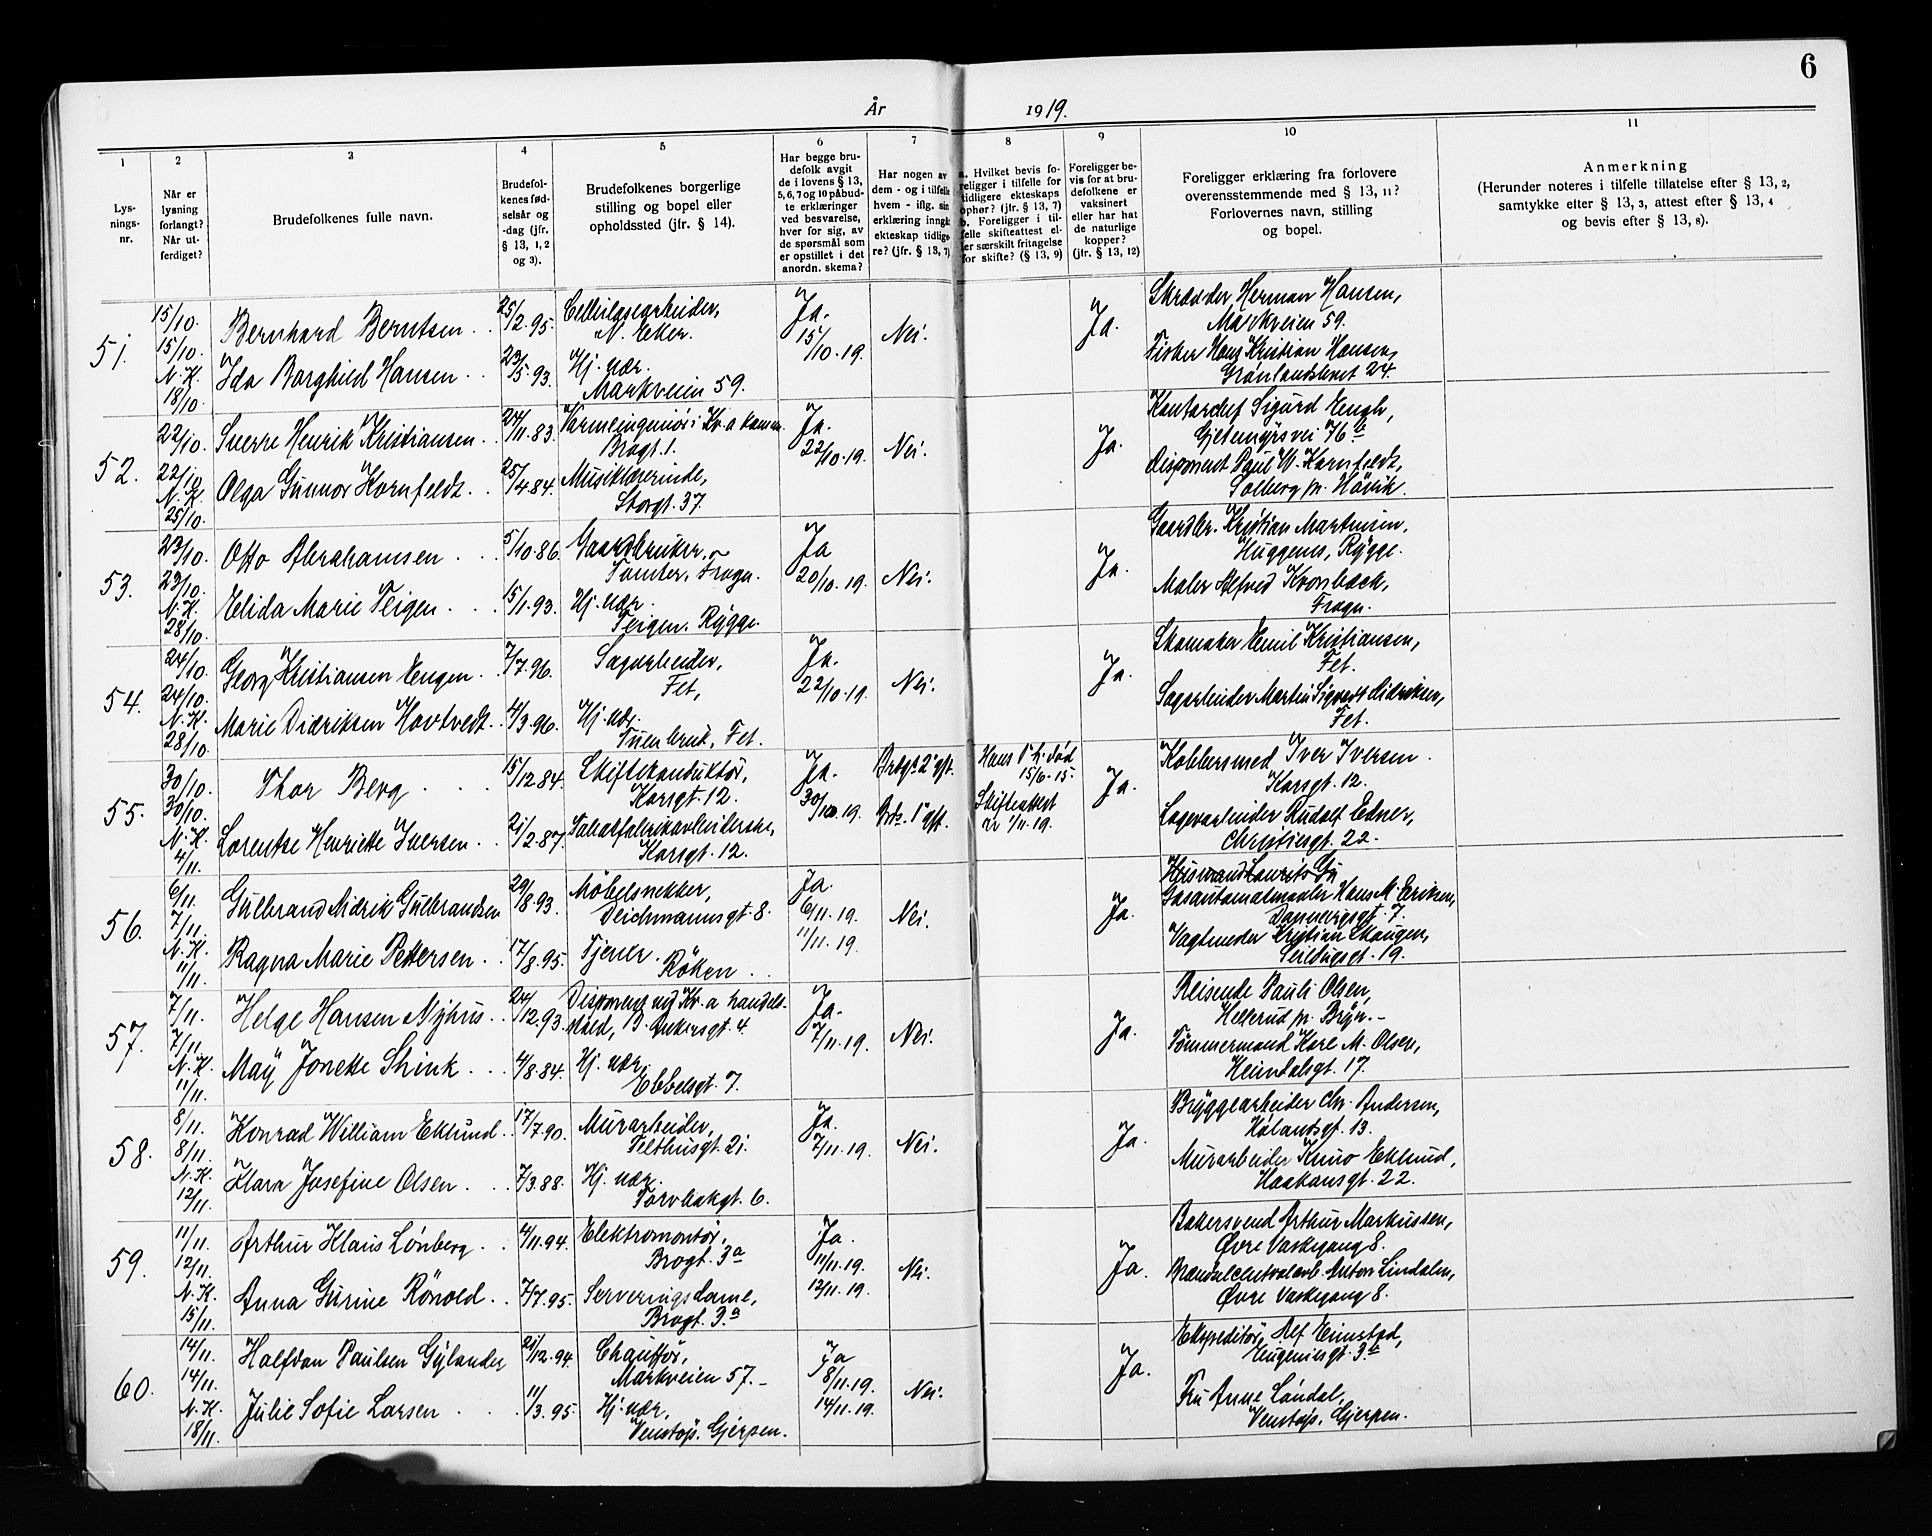 6
År 1919.
1
2
3
4
5
6
7
8
9
10
11
Lys-
nings-
nr.
Når er
lysning
forlangt?
Når ut-
ferdiget?
Brudefolkenes fulle navn.
Brudefol-
kenes fød-
selsår og
-dag (jfr.
§ 13, 1, 2
og 3).
Brudefolkenes borgerlige
stilling og bopel eller
opholdssted (jfr. § 14).
Har begge bru-
defolk avgit
de i lovens § 13,
5, 6, 7 og 10 påbud-
te erklæringer
ved besvarelse,
hver for sig, av
de spørsmål som
er opstillet i det
anordn. skema?
Har nogen av
dem - og i tilfelle
hvem - iflg. sin
erklæring inngå
ekteskap tidlige
re? (jfr. § 13, 7)
a. Hvilket bevis fo-
religger i tilfelle for
tidligere ekteskaps
ophør? (jfr. § 13, 7)
b. Foreligger i til-
felle skifteattest el-
ler særskilt fritagelse
for skifte? (§ 13, 9)
Foreligger be-
vis for at bru-
defolkene er
vaksinert
eller har hat
de naturlige
kopper?
(jfr. § 13, 12)
Foreligger erklæring fra forlovere
overensstemmende med § 13, 11?
Forlovernes navn, stilling
og bopel.
Anmerkning
(Herunder noteres i tilfelle tillatelse efter § 13, 2,
samtykke efter § 13, 3, attest efter § 13, 4
og bevis efter § 13, 8).
51.
15/10.
15/10.
N. K.
18/10
Bernhard Berntsen
Ida Borghild Hansen
25/2.95.
23/5.93.
Cellulosearbeider,
N. Eker.
Hj. vær.
Markveien 59.
Ja.
15/10.19.
Nei.
Ja.
Skrædder Herman Hansen,
Markveien 59.
Fisker Hans Kristian Hansen,
Grønlandsleret 24.
52.
22/10.
22/10
N. K.
25/10.
Sverre Henrik Kristiansen
Olga Gunnor Kornfeldt
24/11.83.
25/4.84.
Varmeingeniør i Kr.a komm.
Brogt. 1.
Musiklærerinde,
Storgt. 37.
Ja.
22/10.19.
Nei.
Ja.
Kontorchef Sigurd Engh,
Gjetemyrsvei 76 b
Disponent Paul W. Kornfeldt,
Solberg pr. Høvik.
53.
23/10.
23/10.
N. K.
28/10.
Otto Abrahamsen
Elida Marie Teigen
5/10.86.
15/1.93.
Gaardbruker,
Tomter, Frogn.
Hj. vær.
Teigen, Rygge.
Ja
20/10.19.
Nei.
Ja.
Gaardbr. Kristian Martinsen,
Huggenes, Rygge.
Maler Alfred Kvernbæck,
Frogn.
54.
24/10.
24/10.
N. K.
28/10
Georg Kristiansen Engen
Marie Didriksen Hovtvedt
7/7.96.
4/3.96.
Sagarbeider,
Fet,
Hj. vær.
Tuenbruk, Fet.
Ja.
22/10.19.
Nei.
Ja.
Skomaker Emil Kristiansen,
Fet.
Sagarbeider Martin Sigvart Didriksen,
Fet.
55.
30/10.
30/10.
N. K.
4/11.
Thor Berg
Lorentse Henriette Iversen
15/12.84.
21/2.87.
Skiftekonduktør,
Korsgt. 12.
Tobakfabrikarbeiderske,
Korsgt. 12.
Ja.
30/10.19.
Brudg. 2den gift.
Brd. 1ste gift.
Hans 1ste h. død
15/6-15.
Skifteattest
av 1/11.19.
Ja.
Kobbersmed Iver Iversen.
Korsgt. 12.
Lagerarbeider Rudolf Edner,
Christiesgt. 22.
56.
6/11.
7/11.
N. K.
11/11.
Gulbrand Nidrik Gulbrandsen
Ragna Marie Pettersen
29/8.93.
17/8.95.
Møbelsnekker,
Deichmannsgt. 8.
Tjener.
Røken
Ja.
6/11.19.
11/11.19.
Nei.
Ja.
Gasautomatmaaler Hans M. Eriksen,
Dannevigsgt. 7.
Vagtmeder Kristian Skaugen,
Seildugsgt. 19.
57.
7/11.
7/11.
N. K.
11/11.
Helge Hansen Nyhus
May Jonette Shink
24/12.93.
4/8.84.
Disponent ved Kr.a handels-
stand, B. Ankersgt. 4.
Hj. vær,
Ebbelsgt. 7.
Ja.
7/11.19.
Nei.
Ja.
Reisende Pauli Olsen,
Hellerud pr. Bryn.
Tømmermand Kare M. Olsen,
Heimdalsgt. 17.
58.
8/11.
8/11.
N. K.
12/11.
Konrad William Eklund
Klara Josefine Olsen
17/7.90.
7/3.88.
Murarbeider,
Telthusgt. 21.
Hj. vær.
Torvbakgt. 6.
Ja.
7/11.19.
Nei.
Ja.
Bryggearbeider Chr. Andersen,
Hølandsgt. 13.
Murarbeider Kuno Eklund,
Haakonsgt. 22.
59.
11/11.
12/11.
N. K.
15/11.
Arthur Klaus Lönberg
Anna Gurine Rönold
4/11.94.
7/7.95.
Elektromontør,
Brogt. 3a
Serveringsdame,
Brogt. 3.a
Ja.
11/11.19.
12/11.19.
Nei.
Ja.
Bakersvend Arthur Markussen,
Øvre Vaskegang 8.
Mandskcentralarb. Anton Lindalen,
Øvre Vaskegang 8.
60.
14/11.
14/11.
N. K.
18/11.
Halfdan Paulsen Gylander
Julie Sofie Larsen
21/12.94.
11/3.95.
Chauffør,
Markveien 57.
Hj. vær,
Venstøp. Gjerpen.
Ja
8/11.19.
14/11.19.
Nei.
Ja.
Ekspeditør Alf Eimstad,
Eugeniesgt. 3.b
Fru Anne Låndal,
Venstøp, Gjerpen.